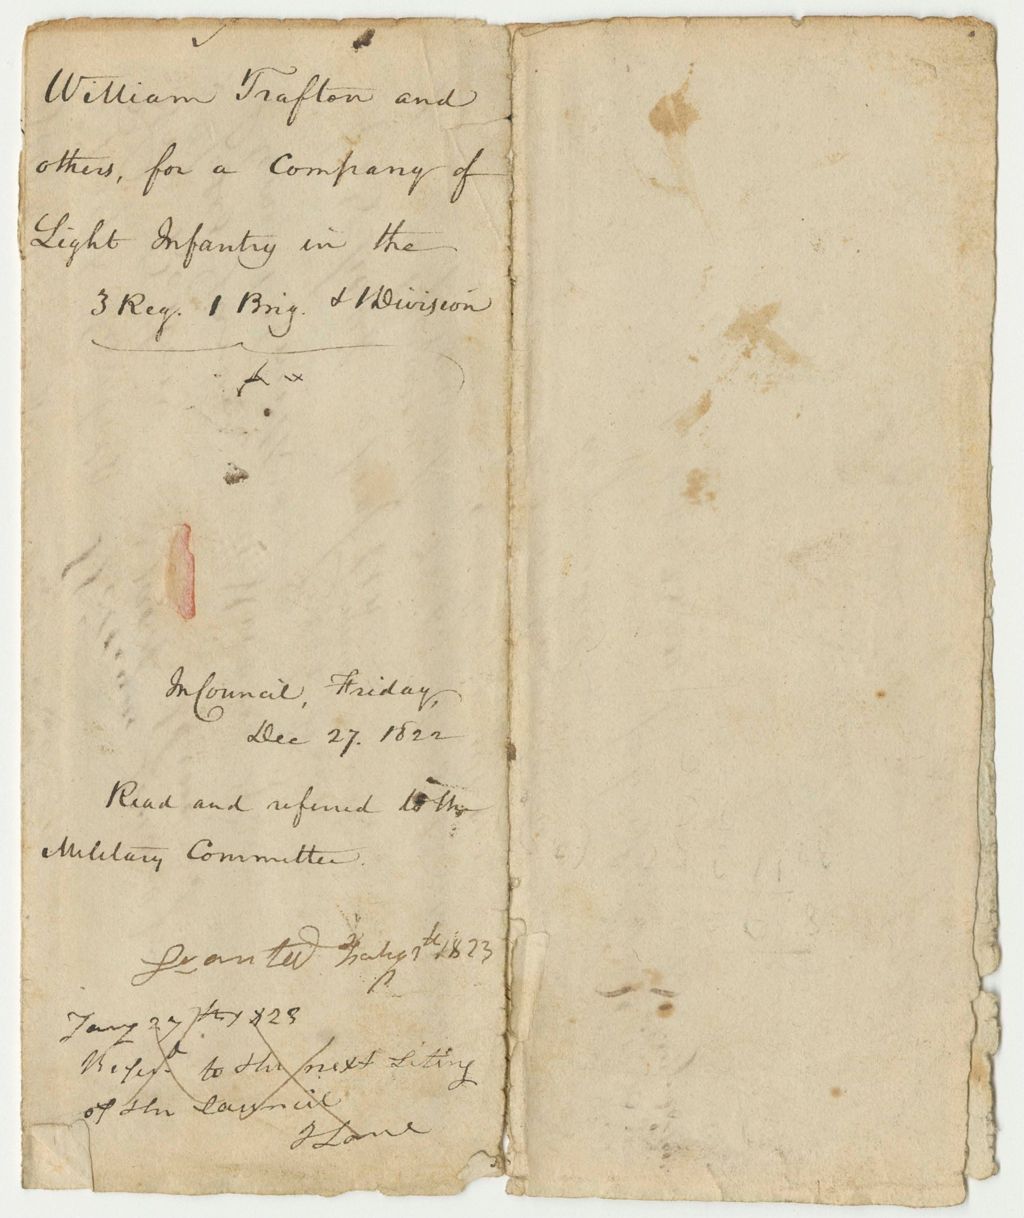 William Trafton and
others, for a Company of
Light Infantry in the
3 Reg. 1 Brig. & 1 Division
In Council, Friday,
Dec 27. 1822
Read and referred to the
Military Committee.
Granted 1823
Jany 27th 1823
Referd to the next siting
of the Council
J Lane